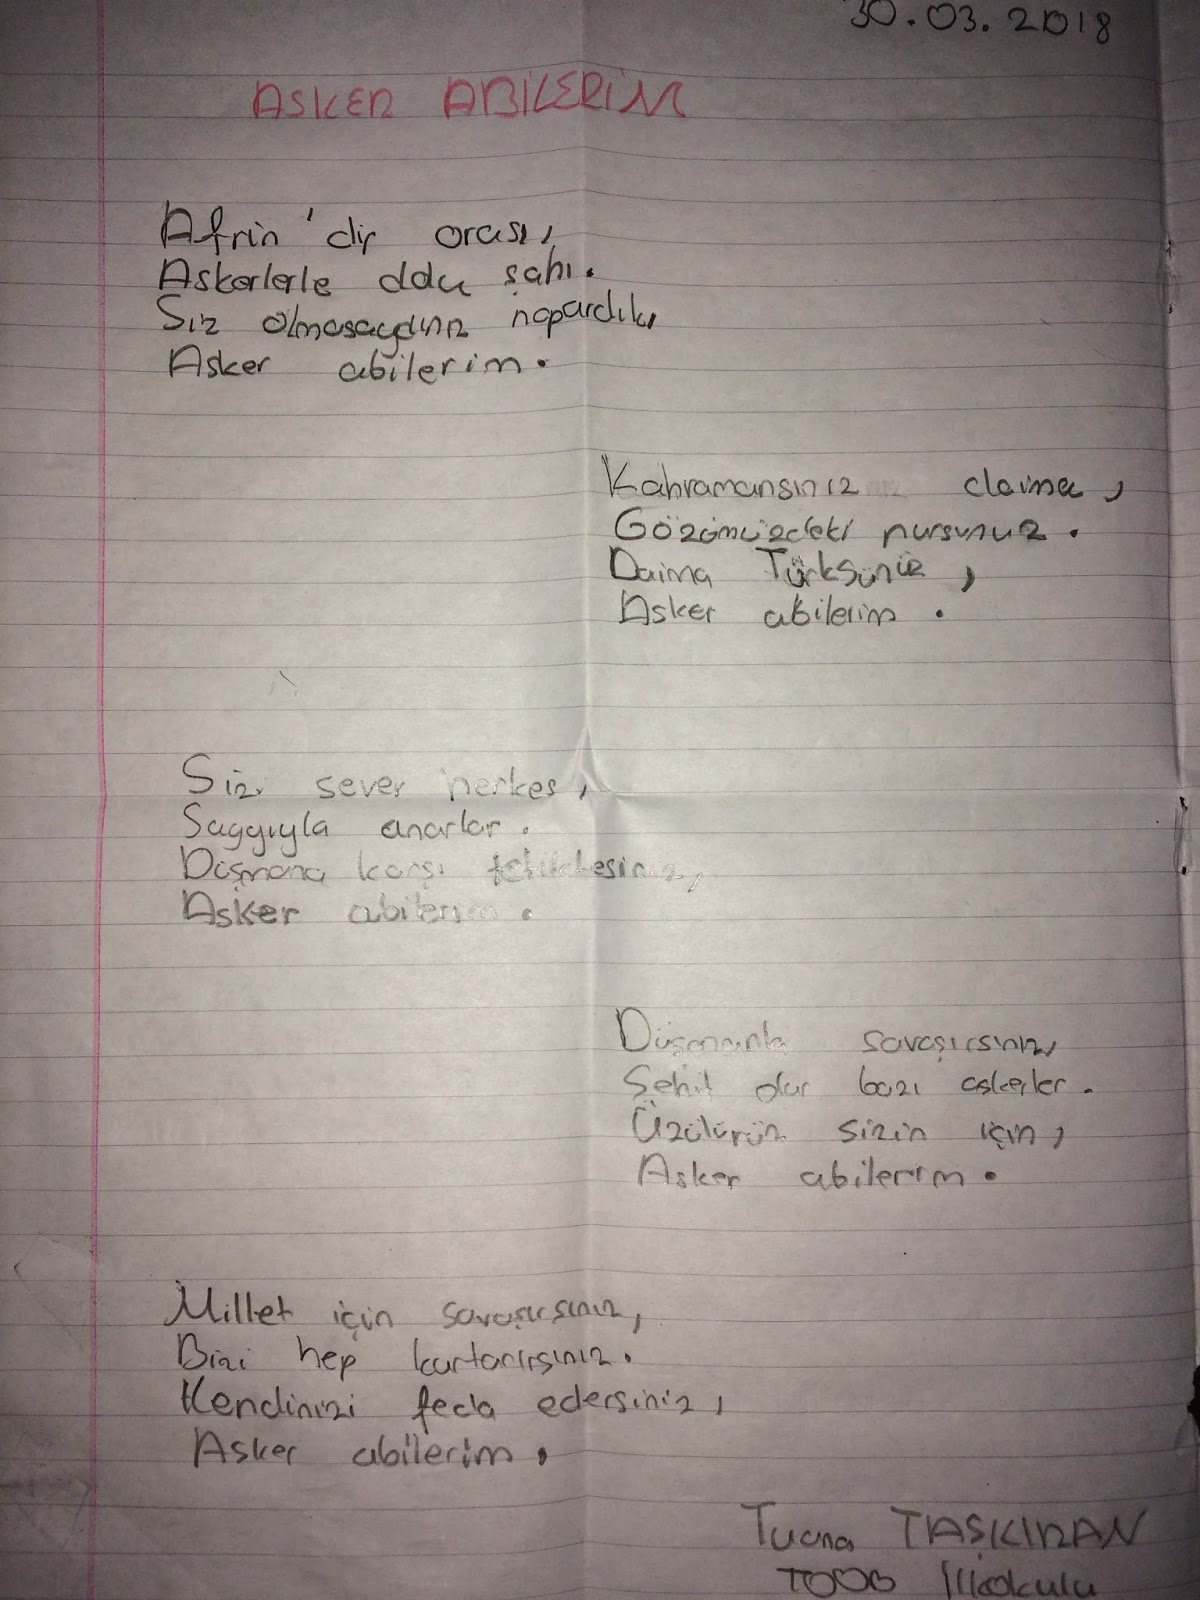 30.03.2018
ASKER ABİLERİM
Afrin'dir orası,
Askerlerle dolu şahı.
Siz olmasaydınız napardık,
Asker abilerim.
Kahramansınız daima,
Gözümüzdeki nursunuz.
Daima Türksünüz,
Asker abilerim.
Sizi sever herkes,
Saygıyla anarlar.
Düşmana karşı tetiktesiniz,
Asker abilerim.
Düşmanla savaşırsınız,
Şehit olur bazı askerler.
Üzülürüz sizin için,
Asker abilerim.
Millet için savaşırsınız,
Bizi hep kurtarırsınız.
Kendinizi feda edersiniz,
Asker abilerim.
Tuana TAŞKIRAN
TOBB İlkokulu